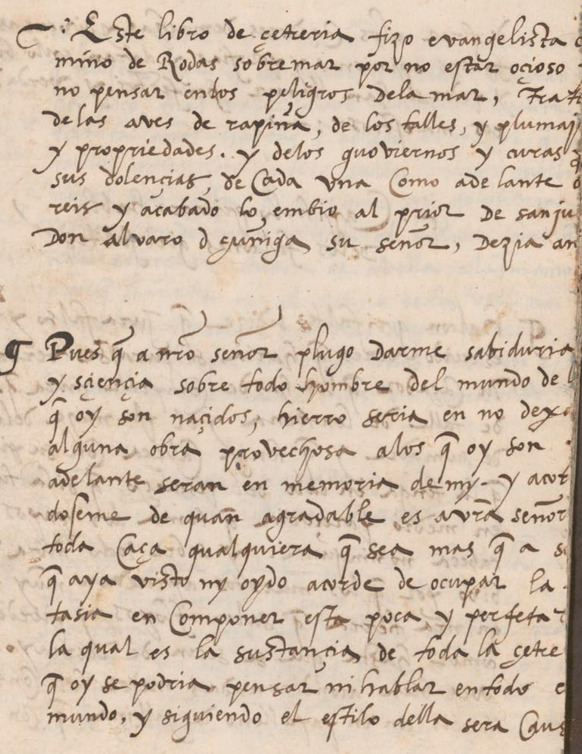 Este libro de çetreria fizo evangelista
mino de Rodas sobremar por no estar oçioso
no pensar enlos peligros dela mar, trat
delas aves de rapiña, de los talles, y plumaj
y propriedades. y delos guoviernos y curas q
sus dolençias, de Cada una Como adelante
reis y acabado lo embio al prior De sanju
Don alvaro d çuñiga su señor, Dezia an
Pues q̃ a nr̃o señor plugo Darme sabiduria
y sçiençia sobre todo hombre del mundo de l
q̃ oy son naçidos, hierro seria en no dexa
alguna obra provechosa alos q̃ oy son
adelante seran en memoria de my. y acor
doseme de quan agradable es a vr̃a señor
toda Caça qualquiera q̃ sea mas q̃ a s
q̃ aya visto ny oydo acorde de ocupar la
tasia en Componer esta poca y perfeta
la qual es la sustançia de toda la çetre
q̃ oy se podria pensar ni hablar entodo e
mundo, y siguiendo el estilo della sera Caus